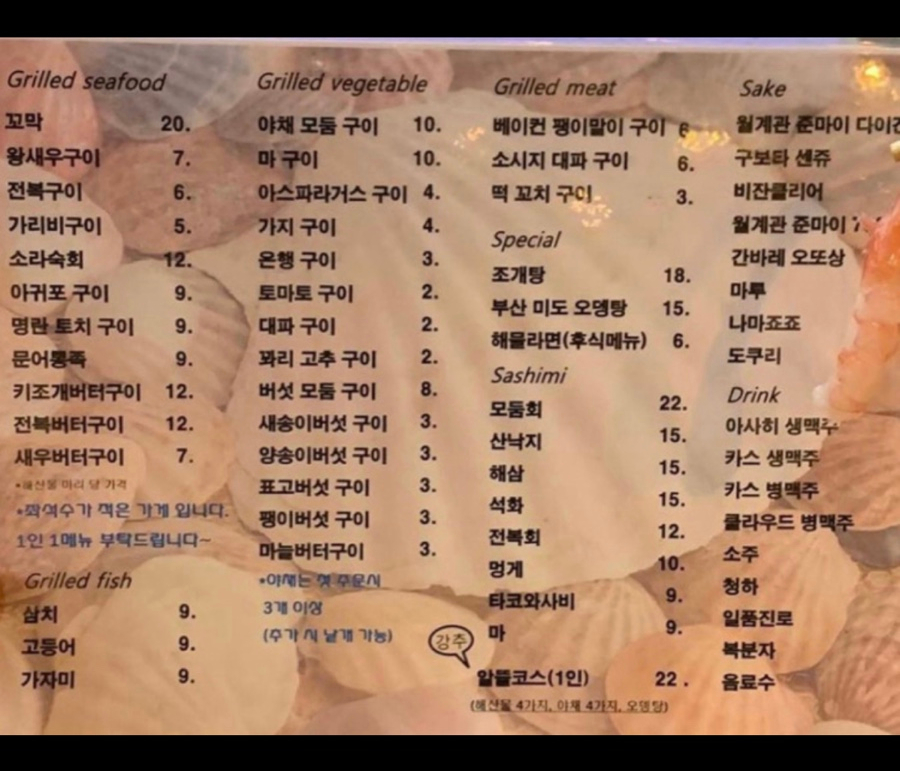 Grilled seafood
꼬막 20.
왕새우구이 7.
전복구이 6.
가리비구이 5.
소라숙회 12.
아귀포 구이 9.
명란 토치 구이 9.
문어통족 9.
키조개버터구이 12.
전복버터구이 12.
새우버터구이 7.
*해산물 마리 당 가격
*좌석수가 적은 가게 입니다.
1인 1메뉴 부탁드립니다~
Grilled fish
삼치 9.
고등어 9.
가자미 9.
Grilled vegetable
야채 모둠 구이 10.
마 구이 10.
아스파라거스 구이 4.
가지 구이 4.
은행 구이 3.
토마토 구이 2.
대파 구이 2.
꽈리 고추 구이 2.
버섯 모둠 구이 8.
새송이버섯 구이 3.
양송이버섯 구이 3.
표고버섯 구이 3.
팽이버섯 구이 3.
마늘버터구이 3.
*야채는 첫 주문시
3개 이상
(추가 시 낱개 가능)
Grilled meat
베이컨 팽이말이 구이 6
소시지 대파 구이 6.
떡 꼬치 구이 3.
Special
조개탕 18.
부산 미도 오뎅탕 15.
해물라면(후식메뉴) 6.
Sashimi
모둠회 22.
산낙지 15.
해삼 15.
석화 15.
전복회 12.
멍게 10.
타코와사비 9.
마 9.
강추
알뜰코스(1인) 22.
(해산물 4가지, 야채 4가지, 오뎅탕)
Sake
월계관 준마이 다이긴
구보타 센쥬
비잔클리어
월계관 준마이
간바레 오또상
마루
나마죠죠
도쿠리
Drink
아사히 생맥주
카스 생맥주
카스 병맥주
클라우드 병맥주
소주
청하
일품진로
복분자
음료수